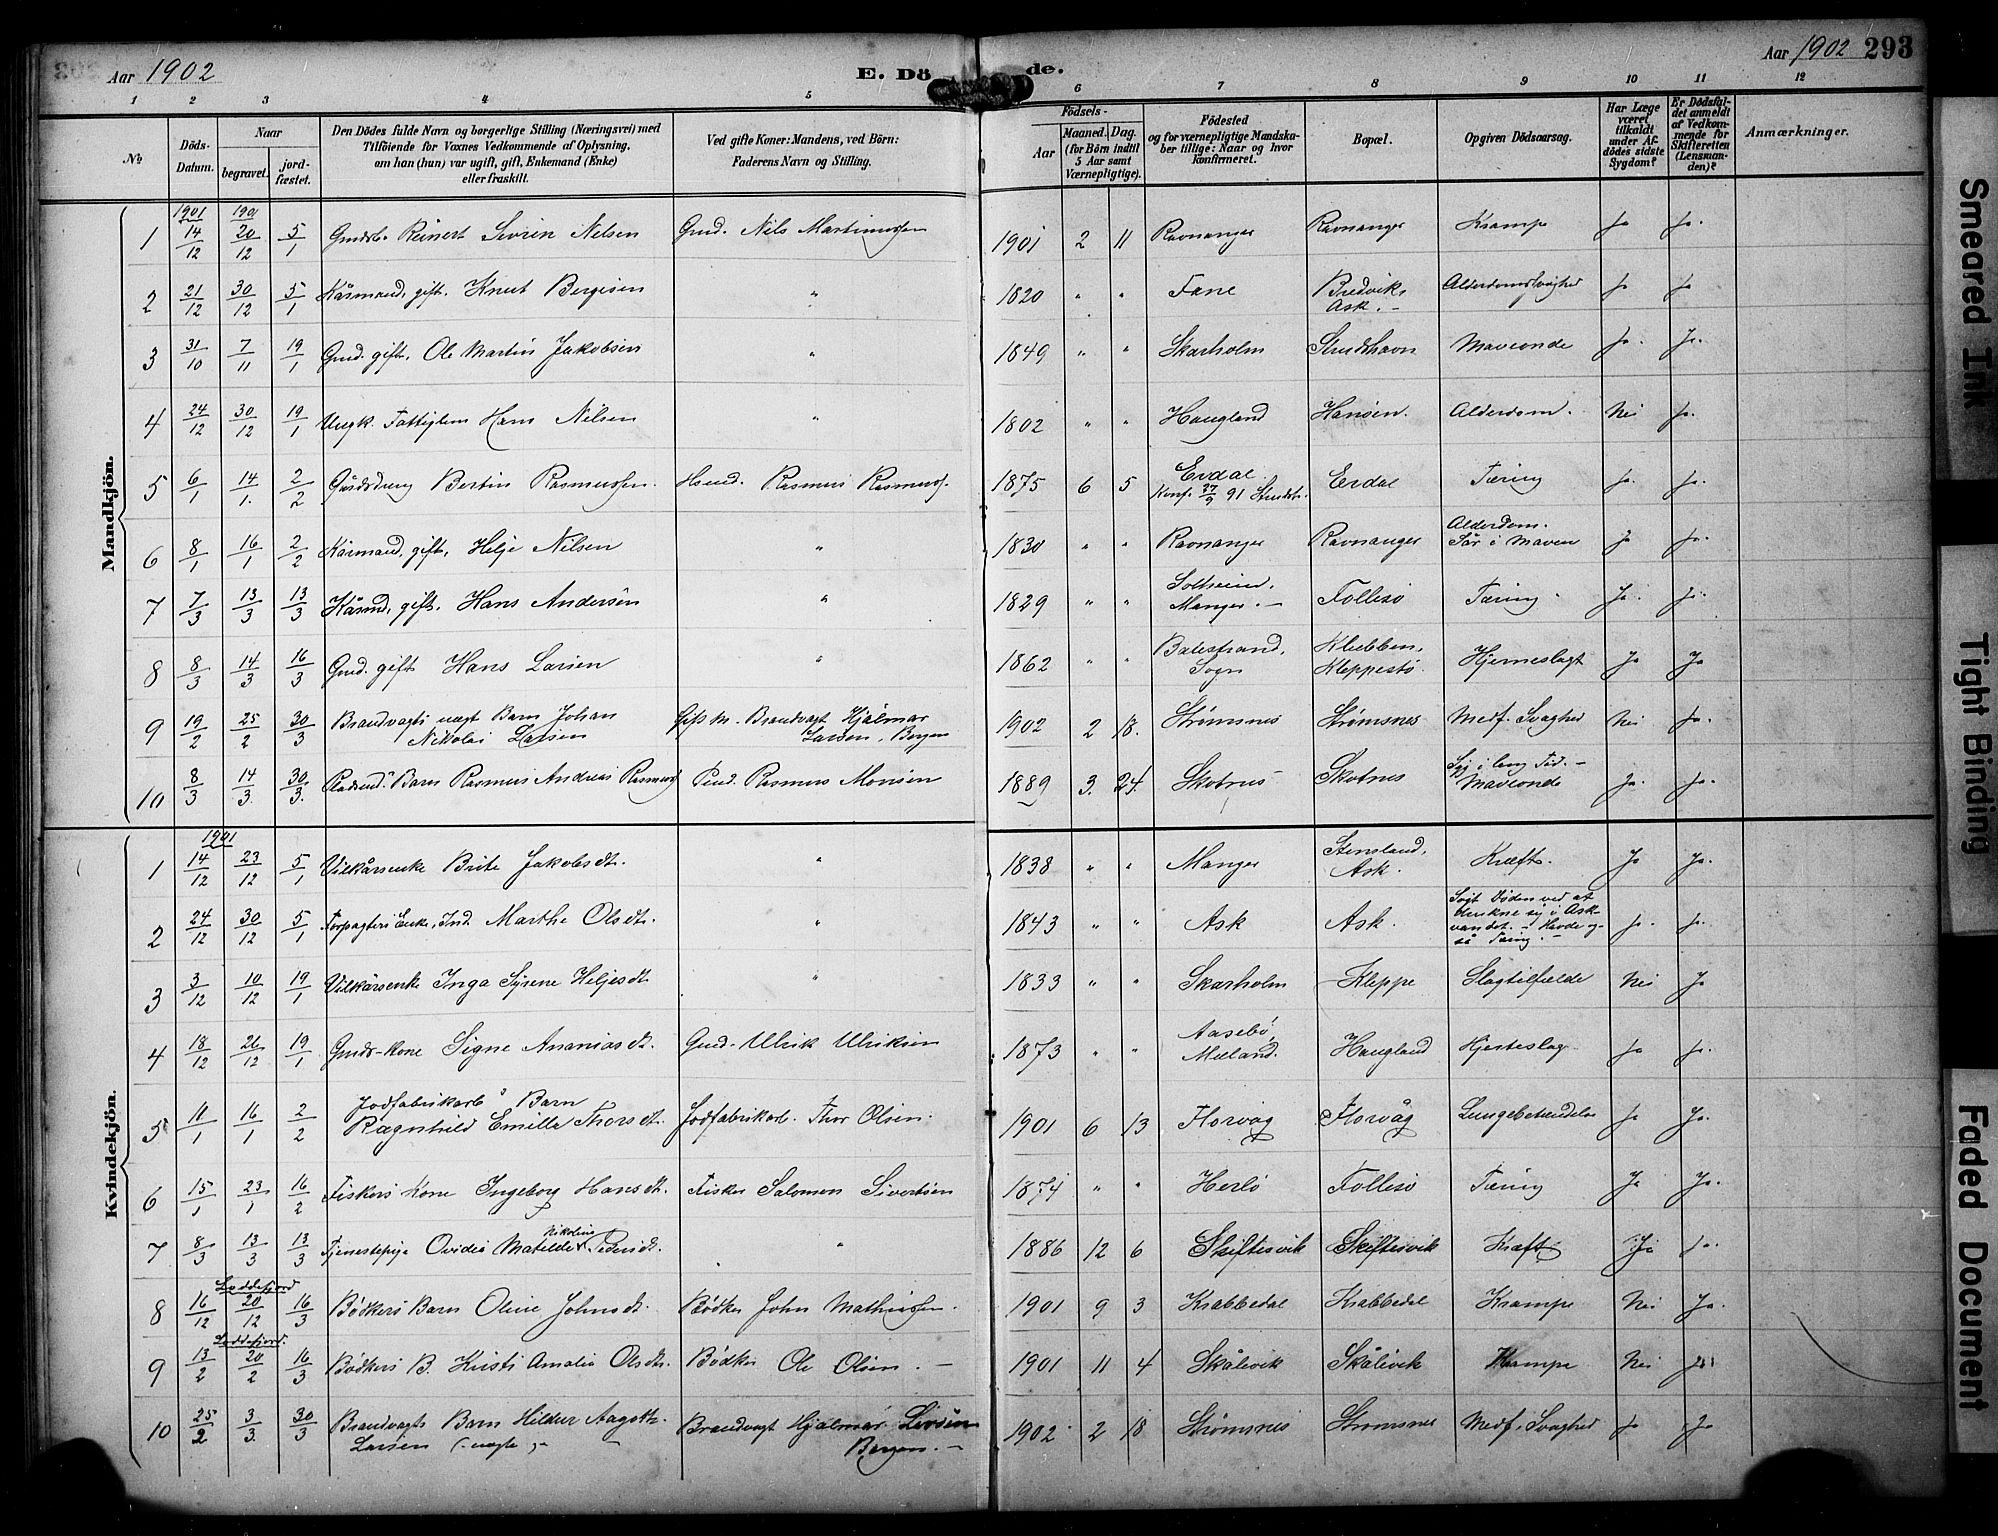 Aar 1902
E. Dö de.
Aar 1902 293
1 2 3 4 5 6 7 8 9 10 11 12
No.
Döds-Datum.
Naar
begravet.
jord-fæstet.
Den Dödes fulde Navn og borgerlige Stilling (Næringsvei) med
Tilföiende for Voxnes Vedkommende af Oplysning,
om han (hun) var ugift, gift, Enkemand (Enke)
eller fraskilt.
Ved gifte Koner: Mandens, ved Börn:
Faderens Navn og Stilling.
Födsels-
Aar
Maaned. Dag.
(for Börn indtil
5 Aar samt
Værnepligtige).
Födested
og for værnepligtige Mandska-
ber tillige: Naar og hvor
konfirmeret.
Bopæl.
Opgiven Dödsaarsag.
Har Læge
været
tilkaldt
under Af-
dödes sidste
Sygdom?
Er Dödsfal-
det anmeldt
af Vedkom-
mende for
Skifteretten
(Lensman-
den)?
Anmærkninger.
Mandkjön.
1901 1901
1 14/12 20/12 5/1 Reinert Sevrin Nelsen Gmd. Nils Martinussen 1901 2 11 Ravnanger Ravnanger Krampe Ja Ja.
2 21/12 30/12 5/1 Kårmand, gift, Knut Bergesen " 1820 " " Fane Bredvik, Ask. Alderdomssvaghed Ja Ja
3 31/10 7/11 19/1 Gmd. gift, Ole Martin Jakobsen " 1849 " " Skarholm Strudshavn Mavonde Ja. Ja.
4 24/12 30/12 19/1 Ungk. Fattiglem Hans Nilsen " 1802 " " Haugland Hansen. Alderdom. Nei Ja.
5 6/1 14/1. 2/2 Gårdsdreng Bertin Rasmussen. Rasmus Rasmuss. 1875 6 5 Erdal Konf. 27/9 91 Erdal Tæring Ja. Ja.
6 8/1 16/1 2/2 Kårmand, gift, Helje Nilsen " 1830 " " Ravnanger Ravnanger Alderdom. Sår i Maven Ja Ja.
7 7/3 13/3 13/3 Kårmd, gift, Hans Andersen " 1829 " " Solheim, Manger. Follesö Tæring Ja. Ja.
8 8/3 14/3 16/3 Gmd. gift Hans Larsen " 1862 " " Balestrand, Sogn Klubben, Kleppestö. Hjerneslagt Ja Ja
9 19/2 25/2 30/3 Brandvagts uægt Barn Johan Nikolai Larsen Gift M. Brandvagt Hjalmar Larsen, Bergen 1902 2 18. Strømsnes Strømsnes Medf. Svaghed Nei Ja.
10 8/3 14/3. 30/3. Pladsmd.s Barn Rasmus Andreas Rasmuss Rasmus Monsen 1889 3. 24. Skotnes Skotnes Syg i lang Tid. Mavonde Ja. Ja.
Kvindekjön.
1901
1 14/12 23/12 5/1 Vilkårsenke Brite Jakobsdt. " 1838 " " Manger Stensland, Ask. Kræft. Ja Ja.
2 24/12 30/12 5/1 Forpagters Enke, Ind. Marthe Olsdt. " 1843 " " Ask Ask. Søgt Døden ved at drukne sig i Ask-vandet. Havde og-så Tæring. Ja. Ja.
3 3/12 10/12 19/1 Vilkårsenke Inga Syrene Heljesdt " 1833 " " Skarholm Kleppe Slagtilfælde Nei Ja
4 18/12 26/12 19/1 Gmds-Kone Signe Ananiasdt. Gmd. Ulrik Ulriksen 1873 " " Aasebö, Mæland. Haugland Hjerteslag. Ja Ja.
5 11/1 16/1 2/2 Jodfabrikarb.s Barn Ragnhild Emilie Thorsdt. Jodfabrikarb. Thor Olsen. 1901 6 13 Florvåg Florvåg Lungebetændelse Ja Ja.
6 15/1 23/1 16/2 Fiskers Kone Ingeborg Hansdt. Fisker Salomon Sivertsen 1874 " " Herlö Follesö Tæring Ja Ja.
7 8/3 13/3 13/3 Tjenestepige Ovidia Matilde Nikoline Pedersdt. " 1886 12 6 Skiftesvik Skiftesvik Kræft Ja Ja.
Loddefjord
8 16/12 20/12 16/3 Bødkers Barn Oline Johnsdt. Bødker John Mathiassen. 1901 9 3 Krabbedal Krabbedal Krampe Nei Ja.
Loddefjord.
9 13/2 20/2 16/3 Bødkers B. Kristi Amalia Olsdt. Bødker Ole Olsen. 1901 11 4 Skålevik Skålevik Krampe Nei Ja
10 25/2 3/3. 30/3 Brandvagts Barn Hildur Aagoth Larsen (uægte) Brandvagt Hjalmar Larsen Bergen. 1902 2 18 Strømsnes Strømsnes Medf. Svaghed Ja Ja
Smeared Ink
Tight Binding
Faded Document